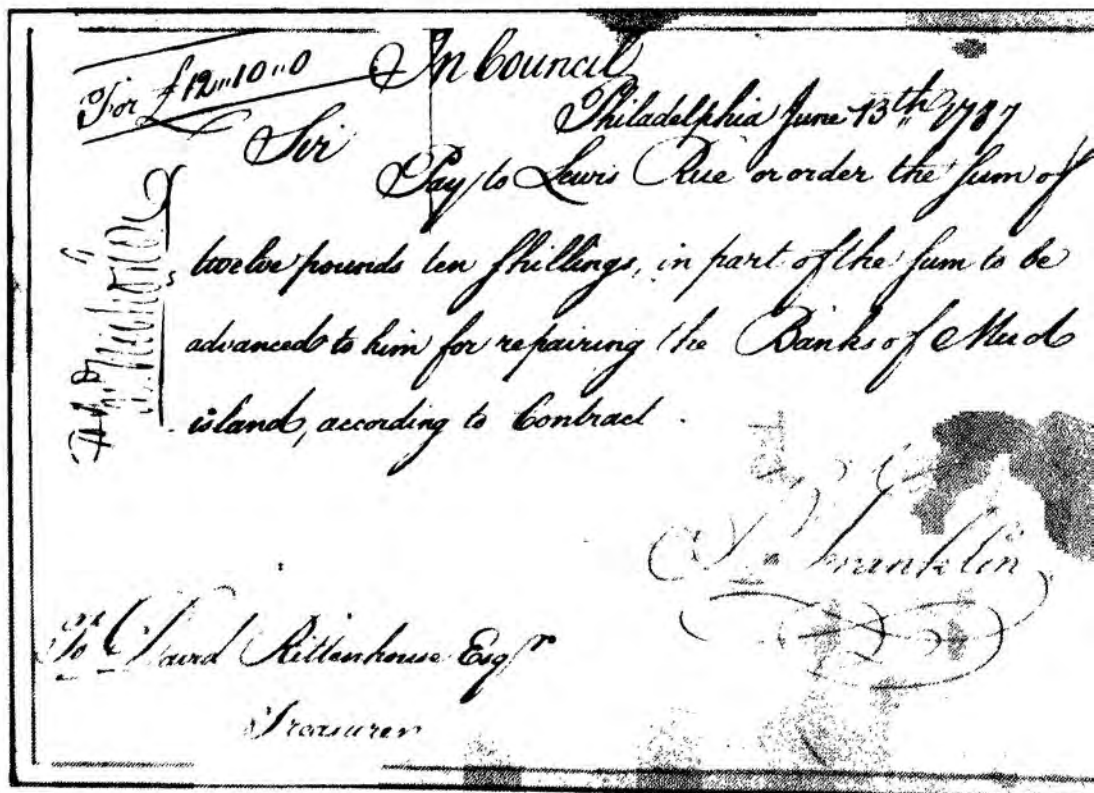 In Council
For £12,,10,,0
Philadelphia June 13th,, 1787
Sir
Pay to Lewis Rue or order the sum of
twelve pounds ten shillings, in part of the sum to be
advanced to him for repairing the Banks of Mud
island, according to Contract.
B Franklin
To David Rittenhouse Esqr
Treasurer